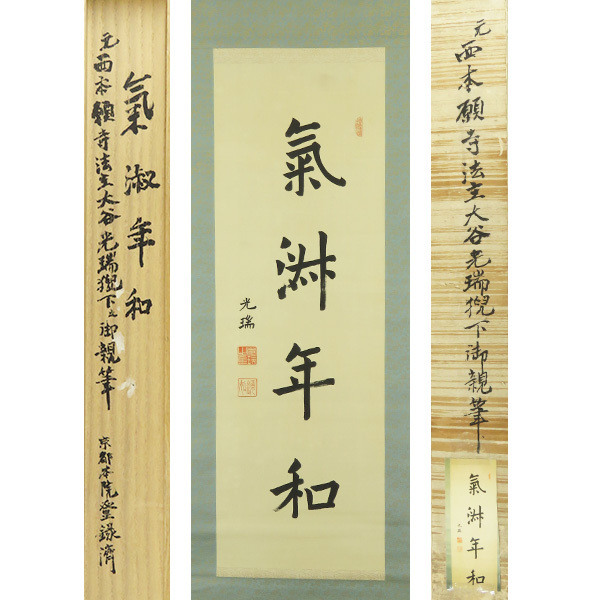 氣淑年和
元西本願寺法主大谷光瑞猊下之御親筆
京都本院登録済
氣淑年和
光瑞
元西本願寺法主大谷光瑞猊下御親筆
氣淑年和
光瑞